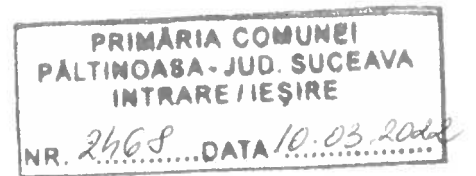 PRIMĂRIA COMUNEI
PĂLTINOASA - JUD. SUCEAVA
INTRARE / IEȘIRE
NR. 2468 DATA 10.03.2022